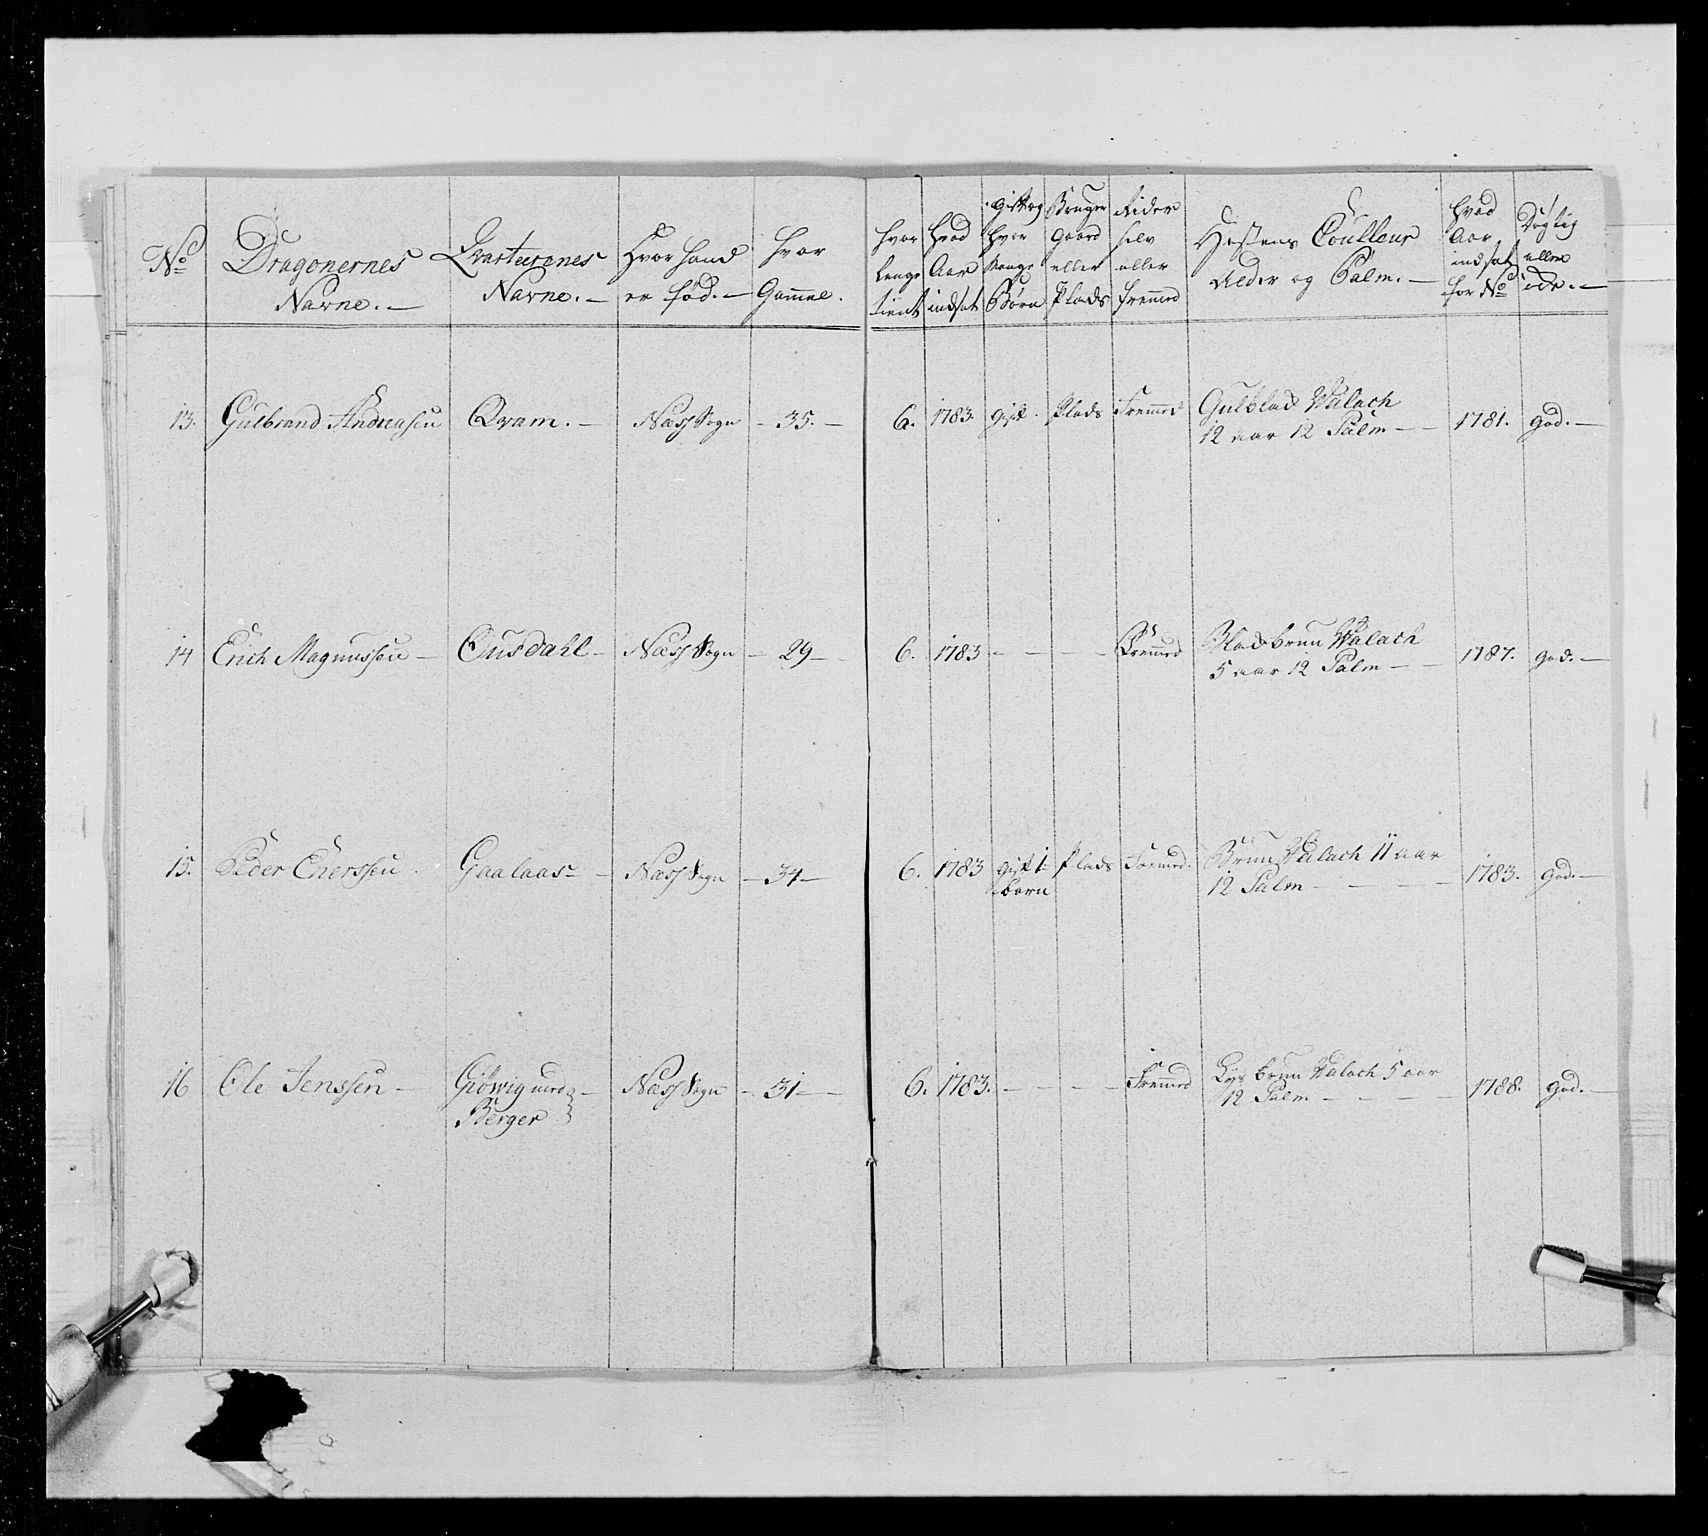 No
Dragonernes
Navne. —
Qvarterenes
Navne. —
Hvor hand
er fød. —
hvor
Gammel.
hvor
lenge
tient
hvad
Aar
indsat
Gift og
hvor
Mange
Børn
Bruger
Gaard
eller
Plads
Rider
selv
eller
fremmed
Hestens Coulleur
Alder og Palm. —
hvad
Aar
indsat
for No
Døgtig
eller
icke. —
13. Gulbrand Andreasen Qvam. — Næss Sogn — 35. — 6. 1783. Gift. Plads Fremmed Gulblad Walach 1781. God. —
12 aar 12 Palm —
14 Erich Magnussen — Ousdahl — Næss Sogn — 29 — 6. 1783 — — — Fremmed Blad brun Walach 1787. God. —
5 aar 12 Palm — —
15. Peder Enerssen. Gaalaas — Næss Sogn — 34 — 6. 1783 Gift 1 Plads Fremmed. Brun Walach 11 aar 1783. God. —
barn 12 Palm — — — —
16 Ole Jenssen — Giöwig med — Næss Sogn — 31 — 6. 1783. — — — Fremmed Lys brun Walach 5 aar 1788. God. —
Berger 12 Palm — — — —